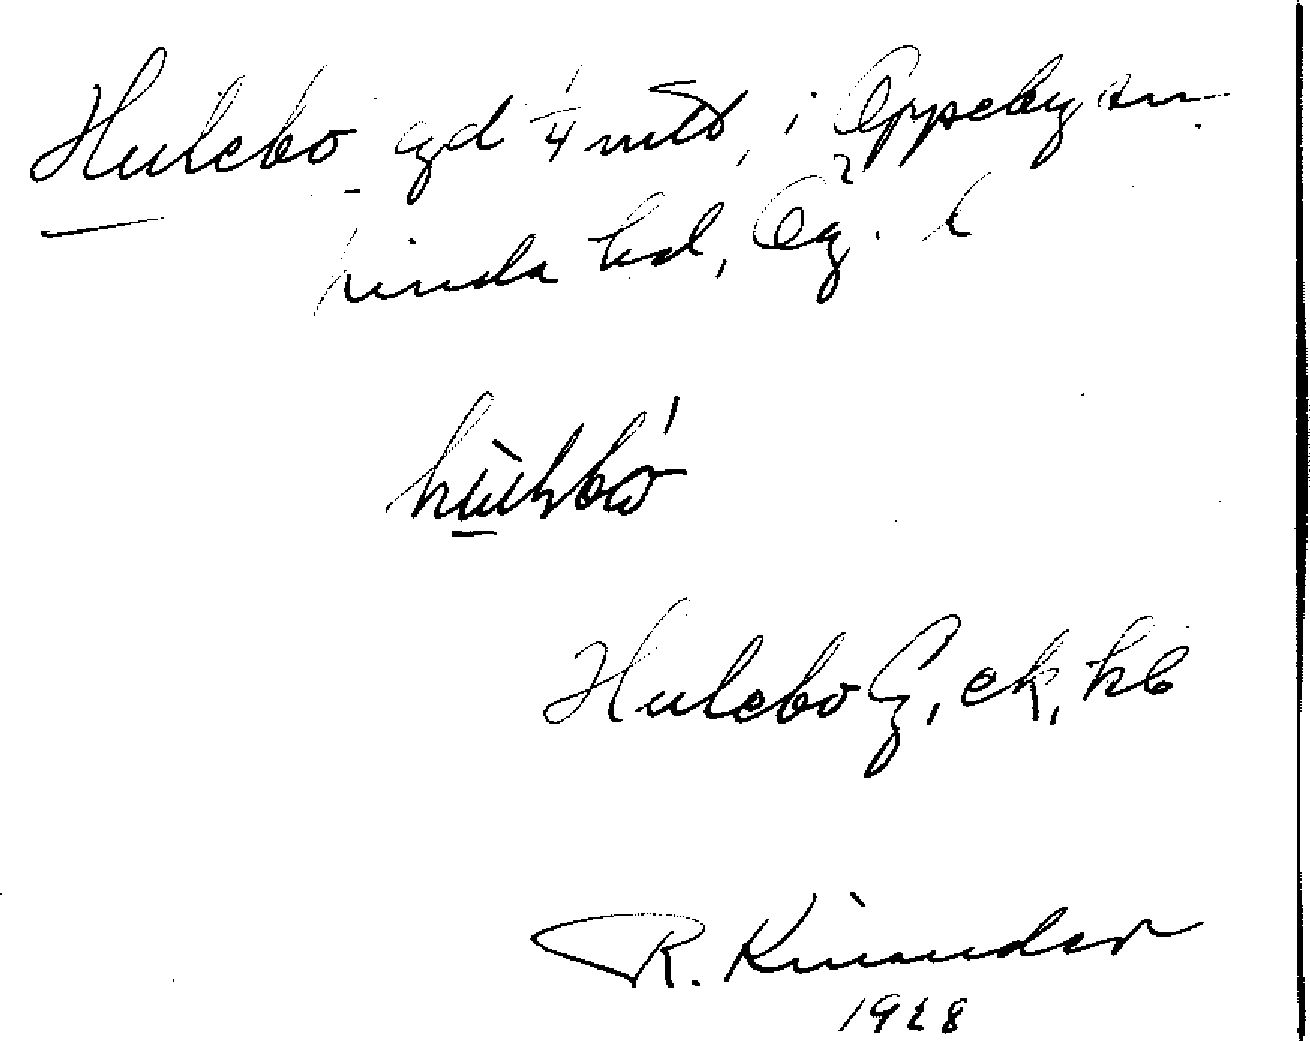 Hulebo gd 1/4 mtl, i Oppeby sn
Kinda hd, Ög. l
Hulebo G, ek, kb
R. Kinander
1928